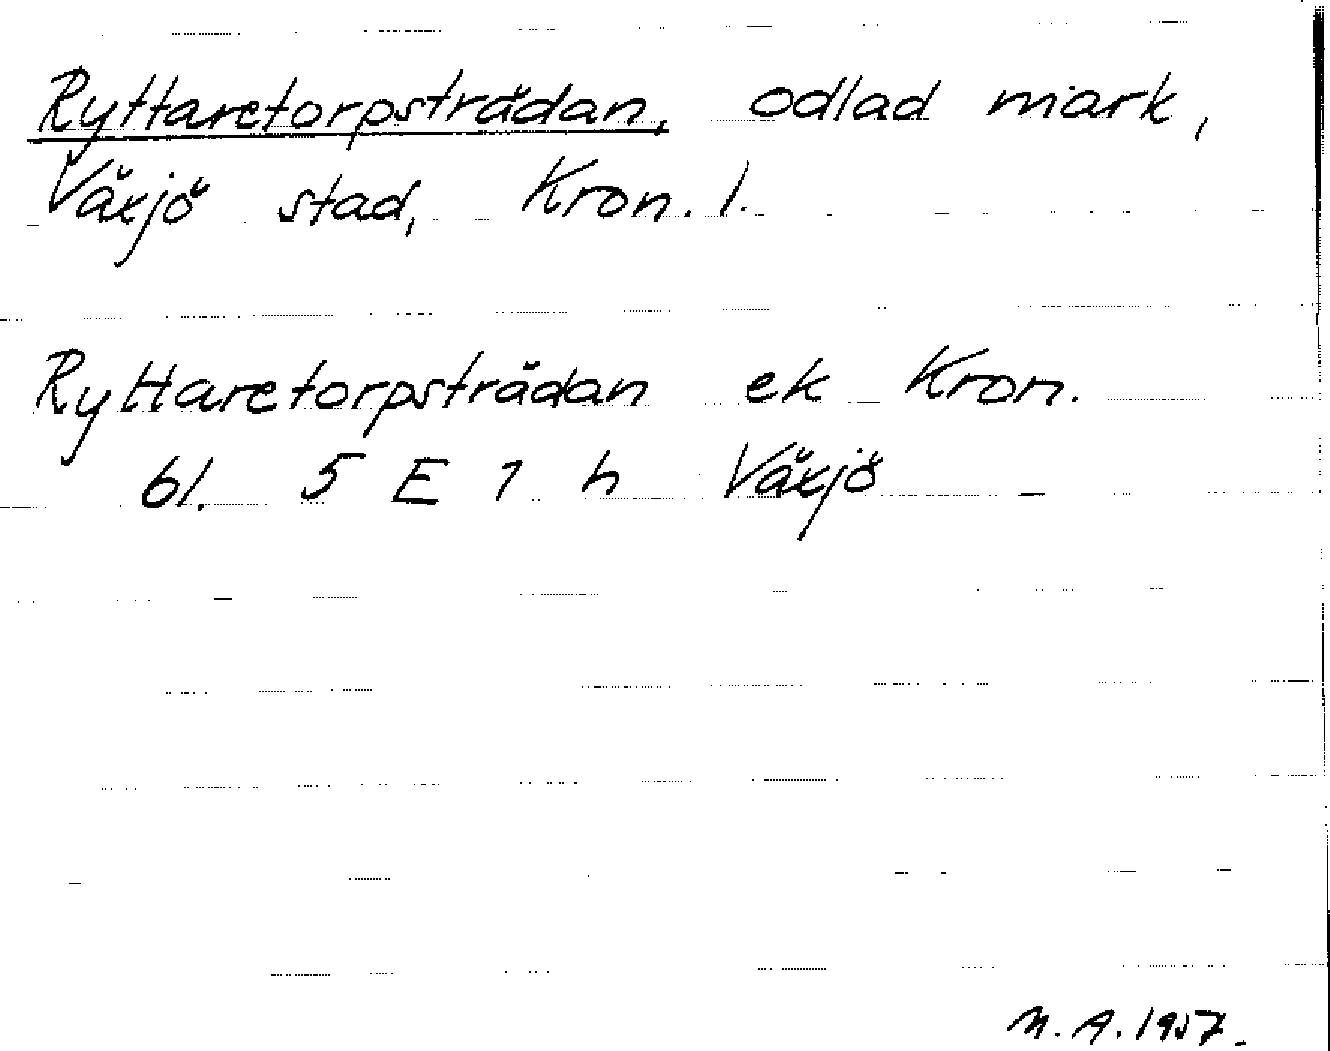 Ryttaretorpsträdan, odlad mark,
Växjö stad, Kron. l.
Ryttaretorpsträdan ek Kron.
bl. 5 E 1 h Växjö
M. A. 1957.